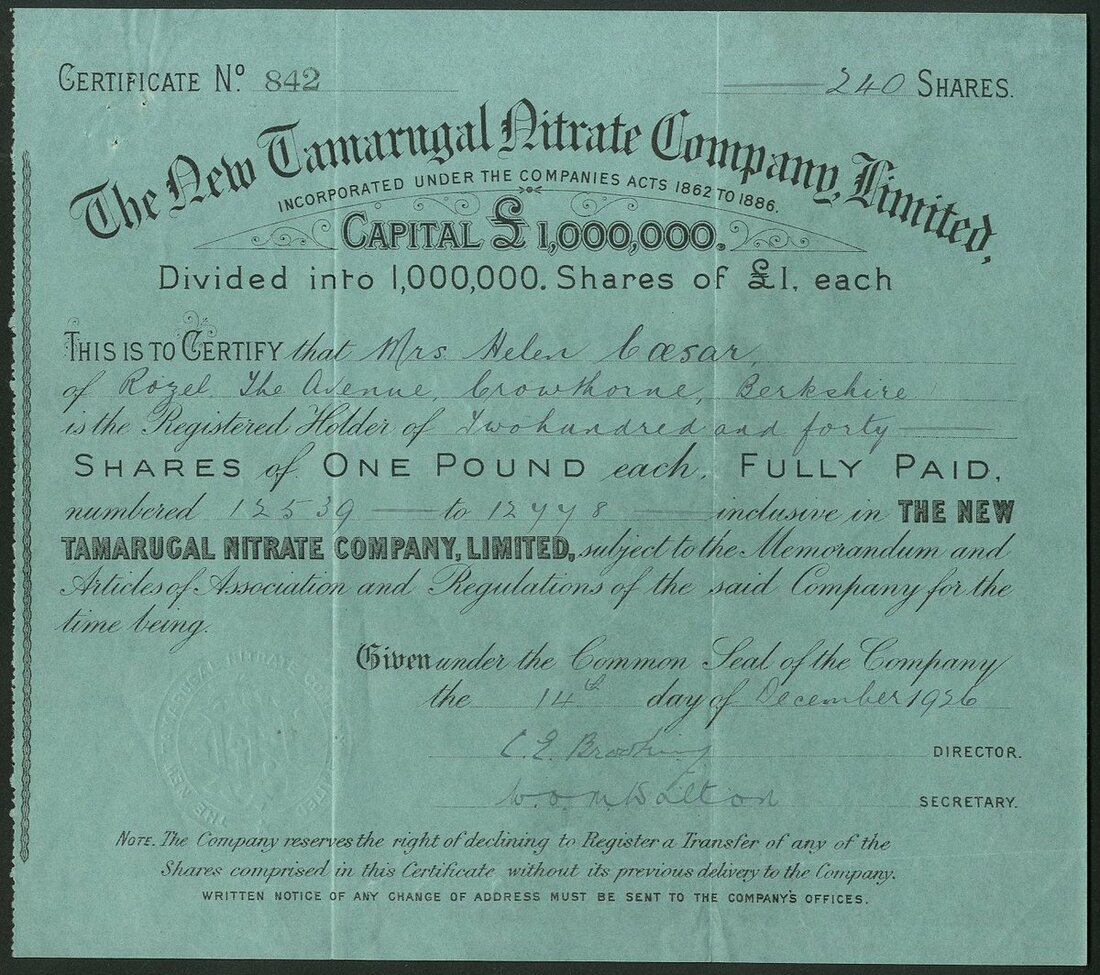 CERTIFICATE Nº 842
240 SHARES.
The New Tamarugal Nitrate Company, Limited,
INCORPORATED UNDER THE COMPANIES ACTS 1862 TO 1886.
CAPITAL £1,000,000.
Divided into 1,000,000. Shares of £1. each
THIS IS TO CERTIFY that Mrs Helen Cæsar,
of Rozel. The Avenue, Crowthorne, Berkshire
is the Registered Holder of Two hundred and forty
SHARES of ONE POUND each, FULLY PAID,
numbered 12539 to 12778 inclusive in THE NEW
TAMARUGAL NITRATE COMPANY, LIMITED, subject to the Memorandum and
Articles of Association and Regulations of the said Company for the
time being.
Given under the Common Seal of the Company
the 14th day of December 1926
C. E. DIRECTOR.
SECRETARY.
THE NEW TAMARUGAL NITRATE COMPANY LIMITED
NOTE. The Company reserves the right of declining to Register a Transfer of any of the
Shares comprised in this Certificate without its previous delivery to the Company.
WRITTEN NOTICE OF ANY CHANGE OF ADDRESS MUST BE SENT TO THE COMPANY'S OFFICES.